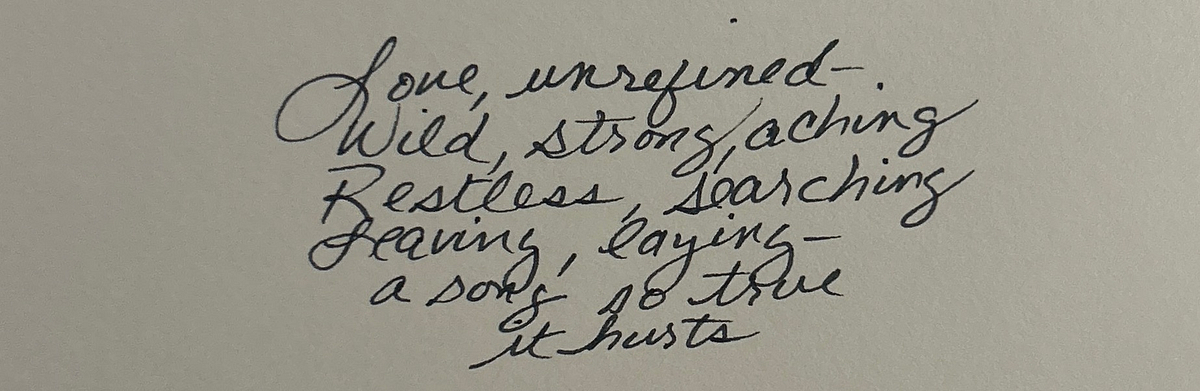 Love, unrefined—.
Wild, strong, aching
Restless, searching
Leaving, laying—
a song so true
it hurts